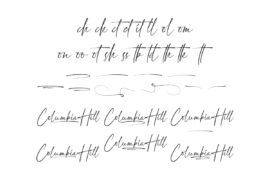 ch ck ct et it ll ol om
on oo ot sh ss th td th tk tt
Columbia Hill Columbia Hill Columbia Hill
Columbia Hill Columbia Hill Columbia Hill